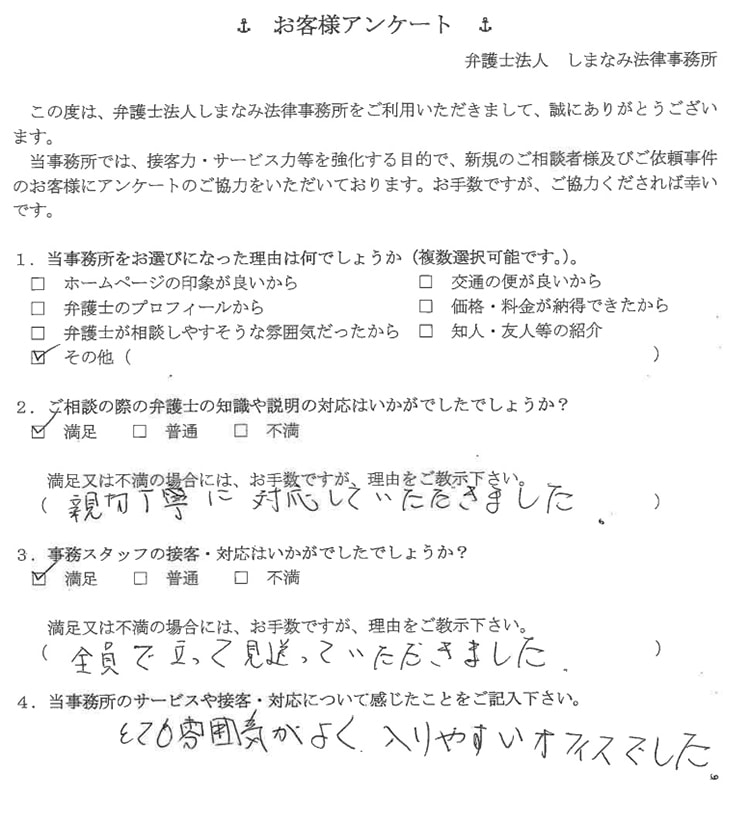 ⚓ お客様アンケート ⚓
弁護士法人 しまなみ法律事務所
この度は、弁護士法人しまなみ法律事務所をご利用いただきまして、誠にありがとうござい
ます。
当事務所では、接客力・サービス力等を強化する目的で、新規のご相談者様及びご依頼事件
のお客様にアンケートのご協力をいただいております。お手数ですが、ご協力くだされば幸い
です。
1．当事務所をお選びになった理由は何でしょうか（複数選択可能です。）。
□ ホームページの印象が良いから □ 交通の便が良いから
□ 弁護士のプロフィールから □ 価格・料金が納得できたから
□ 弁護士が相談しやすそうな雰囲気だったから □ 知人・友人等の紹介
☑ その他（ ）
2．ご相談の際の弁護士の知識や説明の対応はいかがでしたでしょうか？
☑ 満足 □ 普通 □ 不満
満足又は不満の場合には、お手数ですが、理由をご教示下さい。
（ 親切丁寧に対応していただきました。 ）
3．事務スタッフの接客・対応はいかがでしたでしょうか？
☑ 満足 □ 普通 □ 不満
満足又は不満の場合には、お手数ですが、理由をご教示下さい。
（ 全員で立って見送っていただきました。 ）
4．当事務所のサービスや接客・対応について感じたことをご記入下さい。
とても雰囲気がよく、入りやすいオフィスでした。